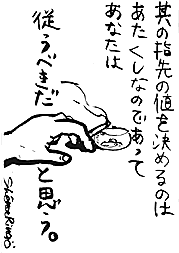 其の指先の値を決めるのは
あたくしなのであって
あなたは
従うべきだ
と思う。
Sheena Ringo